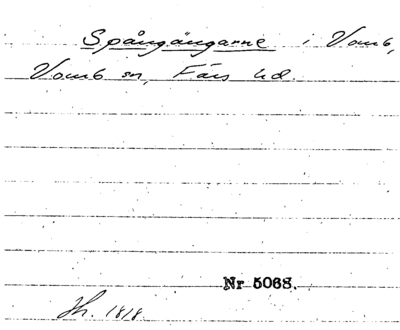 Spångängarne i Vomb,
Vomb sn, Färs hd.
Nr 5068.
Jh. 1818.